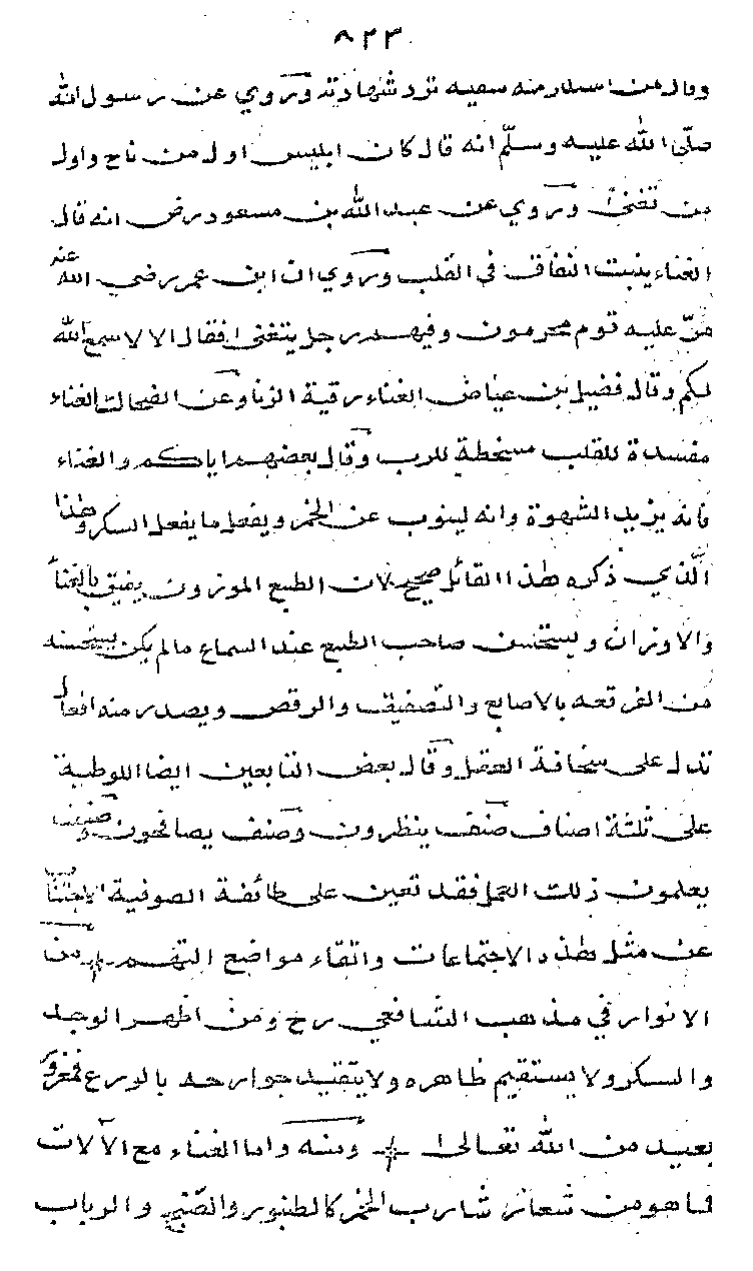 ٨٢٣
وقال من استكثر منه سفيه ترد شهادته وروي عن رسول الله
صلّى الله عليه وسلّم انه قال كان ابليس اول من ناح واول
من تغنى وروي عن عبد الله بن مسعود رض انه قال
الغناء ينبت النفاق في القلب وروي ان ابن عمر رضي الله عنه
مرّ عليه قوم محرمون وفيهم رجل يتغنى فقال الا لا سمع الله
لكم وقال فضيل بن عياض الغناء رقية الزنا وعن الضحاك الغناء
مفسدة للقلب مسخطة للرب وقال بعضهم اياكم والغناء
فانه يزيد الشهوة وانه لينوب عن الخمر ويفعل ما يفعل السكر وهذا
الّذي ذكره هذا القائل صحيح لان الطبع الموزون يفيق بالغناء
والاوزان ويستحسن صاحب الطبع عند السماع ما لم يكن يستحسنه
من الفرقعه بالاصابع والتصفيق والرقص ويصدر منه افعال
تدل على سخافة العقل وقال بعض التابعين ايضا اللوطية
على ثلثة اصناف صنف ينظرون وصنف يصافحون وصنف
يعلمون ذلك العمل فقد تعين على طائفة الصوفية الاجتناب
عن مثل هذه الاجتماعات واتقاء مواضع التهم من
الانوار في مذهب الشافعي رح ومن اظهر الوجد
والسكر ولا يستقيم ظاهره ولا يتقيد جوارحه بالورع فمغرور
بعيد من الله تعالى ومنه واما الغناء مع الآلات
فما هو من شعائر شارب الخمر كالطنبور والصّنج والرباب